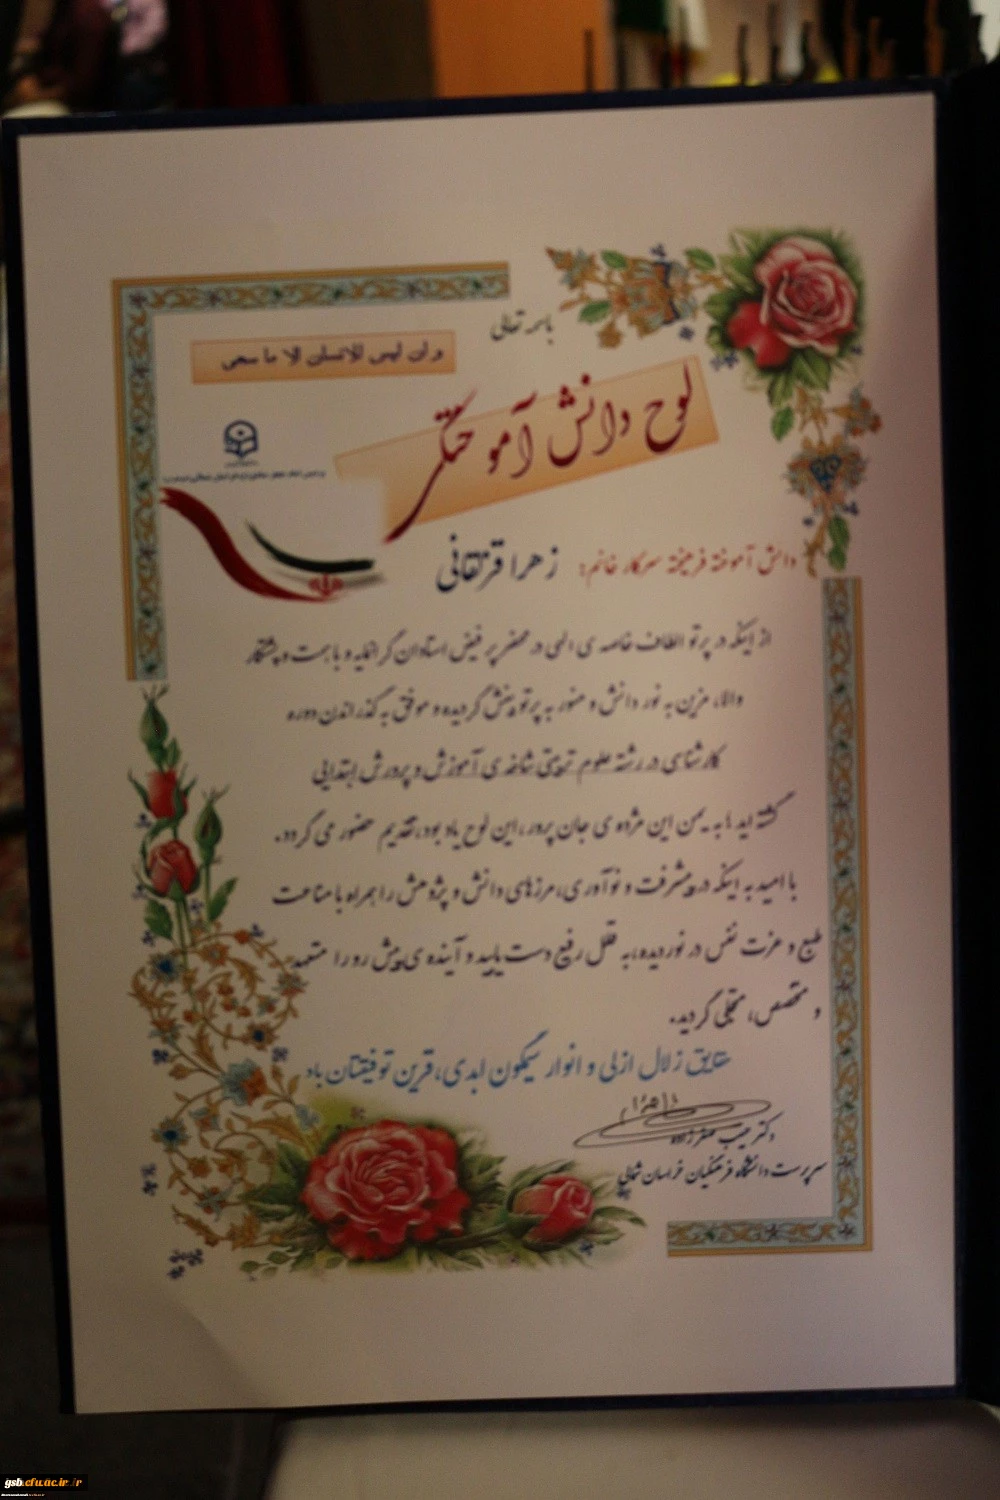 باسمه تعالی
و ان لیس للانسان الا ما سعی
لوح دانش آموختگی
دانش آموخته فرهیخته سرکار خانم: زهرا قزنقانی
از اینکه در پرتو الطاف خاصه ی الهی در محضر پر فیض استادان گرانمایه و با همت و پشتکار
والا، مزین به نور دانش و منور به پرتو بینش گردیده و موفق به گذراندن دوره
کارشناسی در رشته علوم تربیتی شاخه ی آموزش و پرورش ابتدایی
گشته اید به یمن این مژده ی جان پرور، این لوح یادبود، تقدیم حضور می گردد.
با امید به اینکه در پیشرفت و نوآوری، مرزهای دانش و پژوهش را همراه با مناعت
طبع و عزت نفس در نوردیده، به قلل رفیع دست یابید و آینده ی پیش رو را متعهد
و متخصص، متجلی گردید.
حقایق زلال ازلی و انوار نیلگون ابدی، قرین توفیقتان باد
دکتر
سرپرست دانشگاه فرهنگیان خراسان شمالی
gsb.cfu.ac.ir